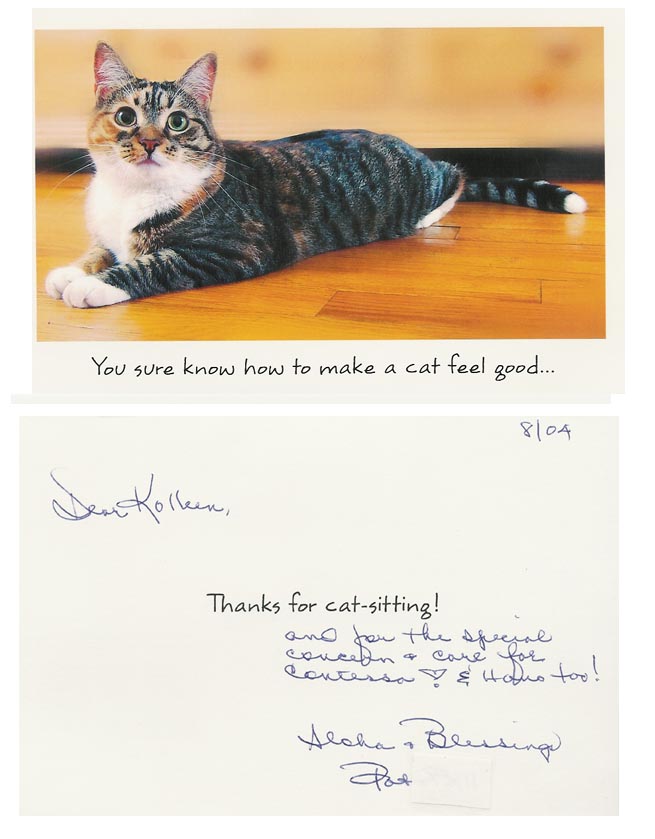 You sure know how to make a cat feel good...
8/04
Dear Kolleen,
Thanks for cat-sitting!
and for the special
concern & care for
Contessa ♡! & Hano too!
Aloha & Blessings
Pat